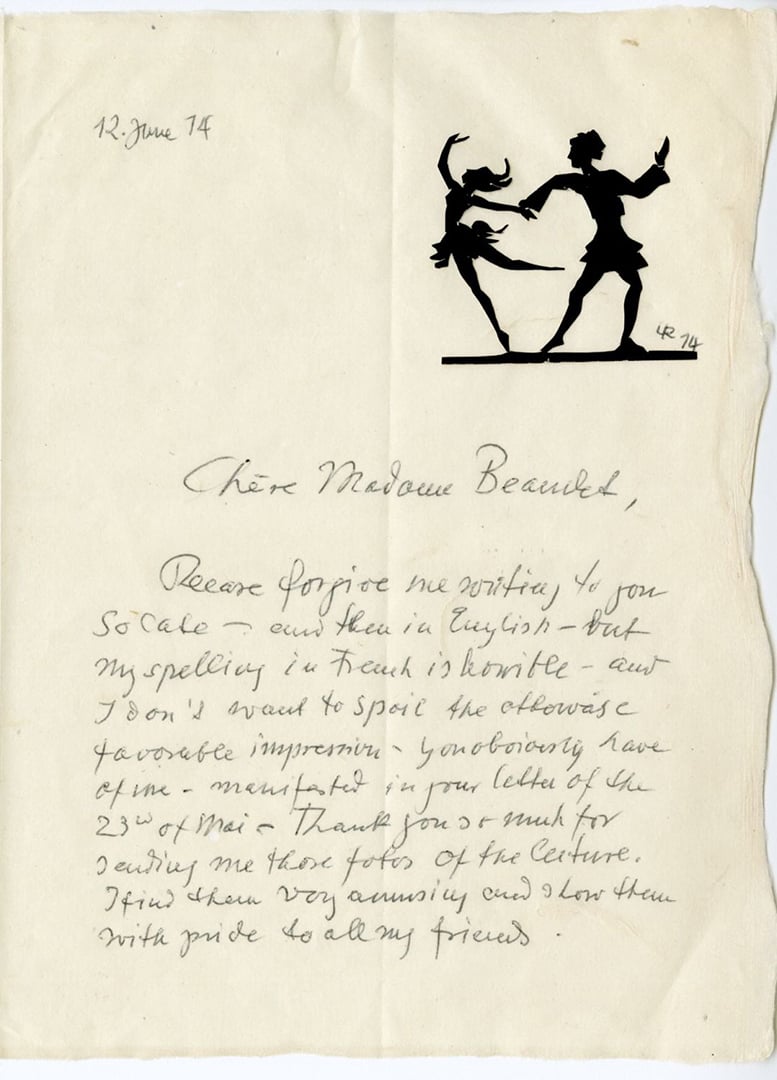 12. June 74
LR 74
Chère Madame Beaudet,
Please forgive me writing to you
so late – and then in English – but
my spelling in French is horrible – and
I don't want to spoil the otherwise
favorable impression – you obviously have
of me – manifested in your letter of the
23rd of Mai – Thank you so much for
sending me those fotos of the lecture.
I find them very amusing and show them
with pride to all my friends.